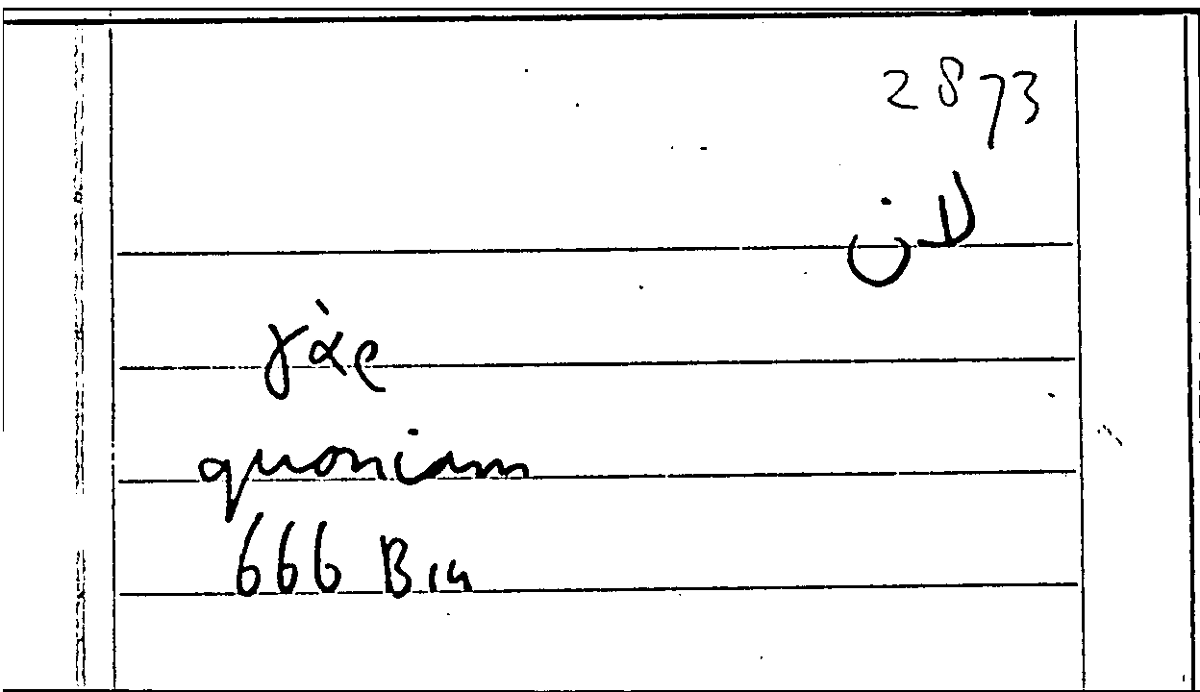 2873
لان
γὰρ
quoniam
666 B 14